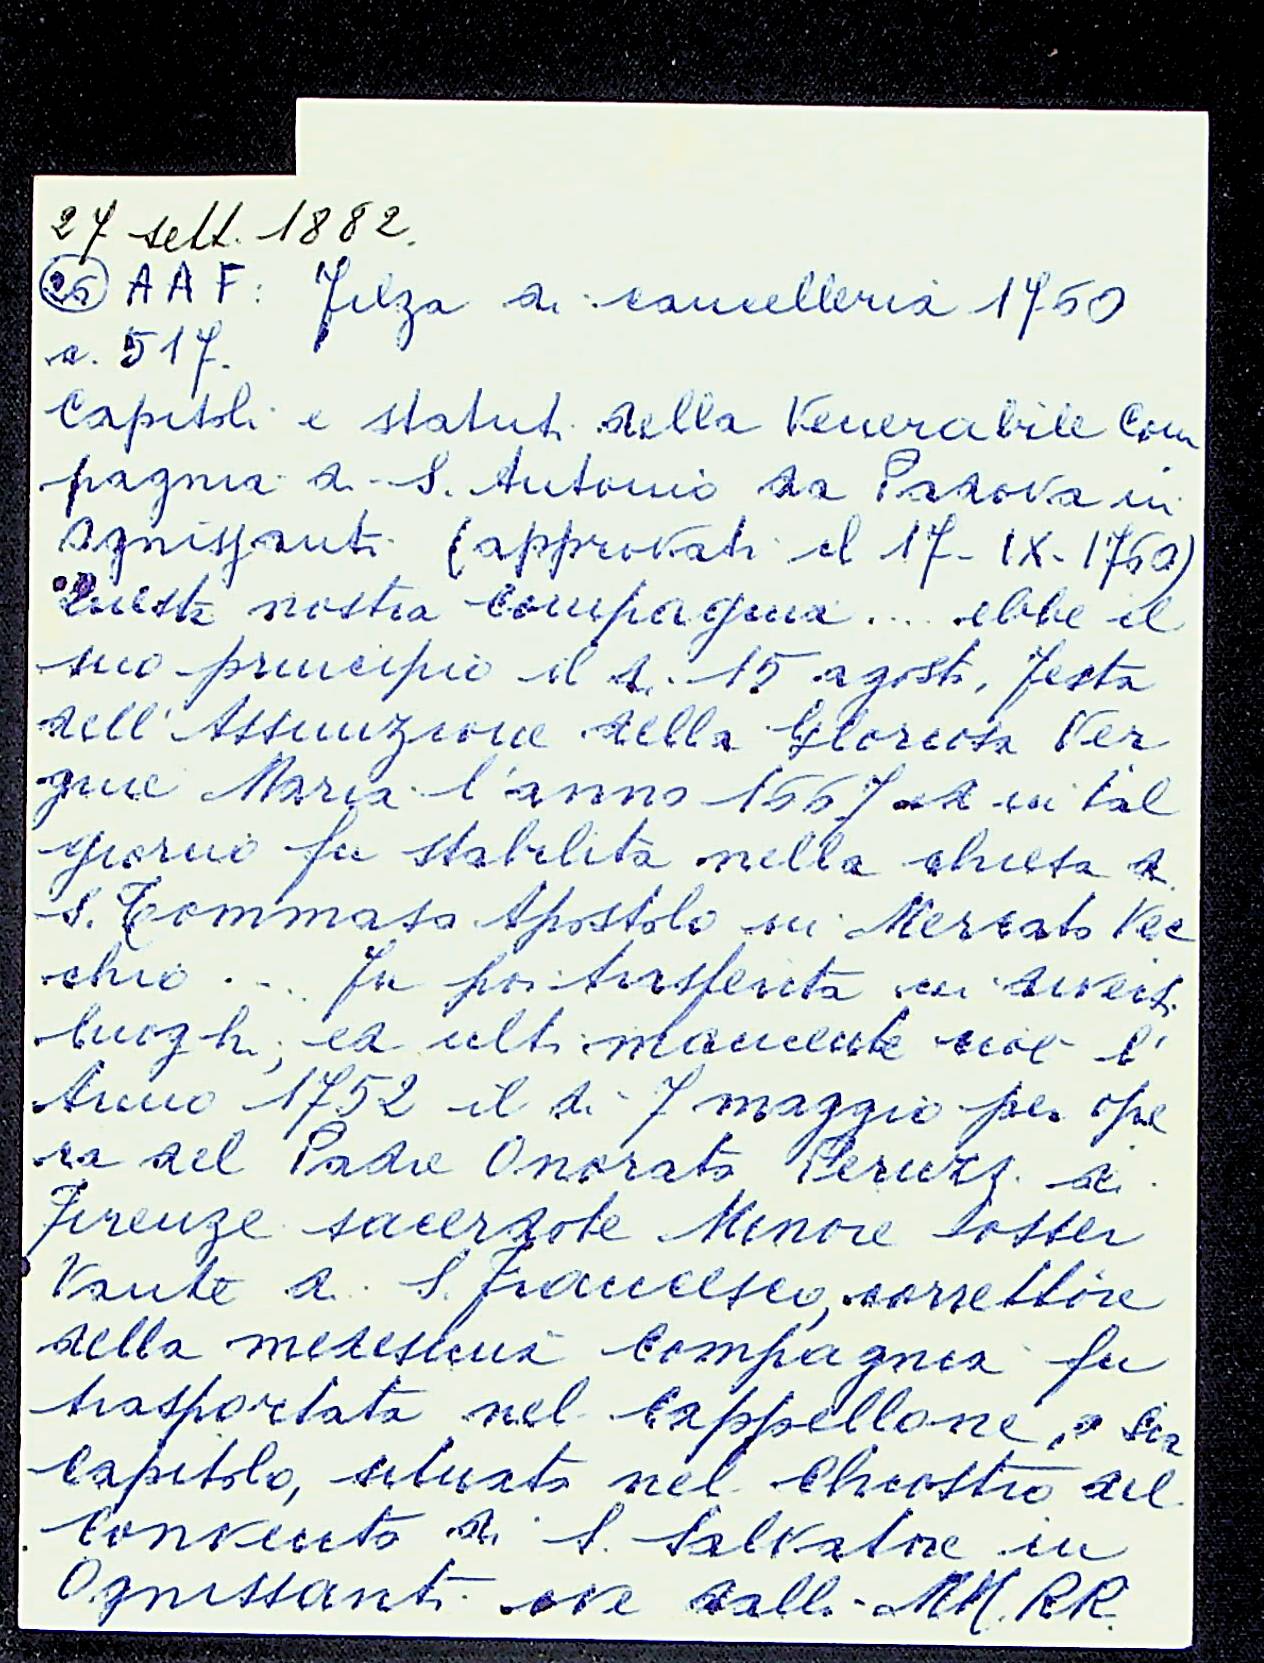 27 sett. 1882.
26 A A F: Filza di cancelleria 1760
c. 517.
Capitoli e statuti della Venerabile Com
pagnia di S. Antonio da Padova in
Ognissanti (approvati il 17-IX-1760)
Questa nostra Compagnia .... ebbe il
suo principio il dì 15 agosto, festa
dell'Assunzione della Gloriosa Ver
gine Maria l'anno 1567 ed in tal
giorno fu stabilita nella chiesa di
S. Tommaso Apostolo in Mercato Vec
chio .... fu poi trasferita in diversi
luoghi, ed ultimamente cioè l'
Anno 1752 il dì 7 maggio per ope
ra del Padre Onorato Peruzzi di
Firenze sacerdote Minore Osser
vante di S. Francesco, correttore
della medesima Compagnia fu
trasportata nel Cappellone, o sia
Capitolo, situato nel Chiostro del
Convento di S. Salvatore in
Ognissanti ove dalli MM. RR.